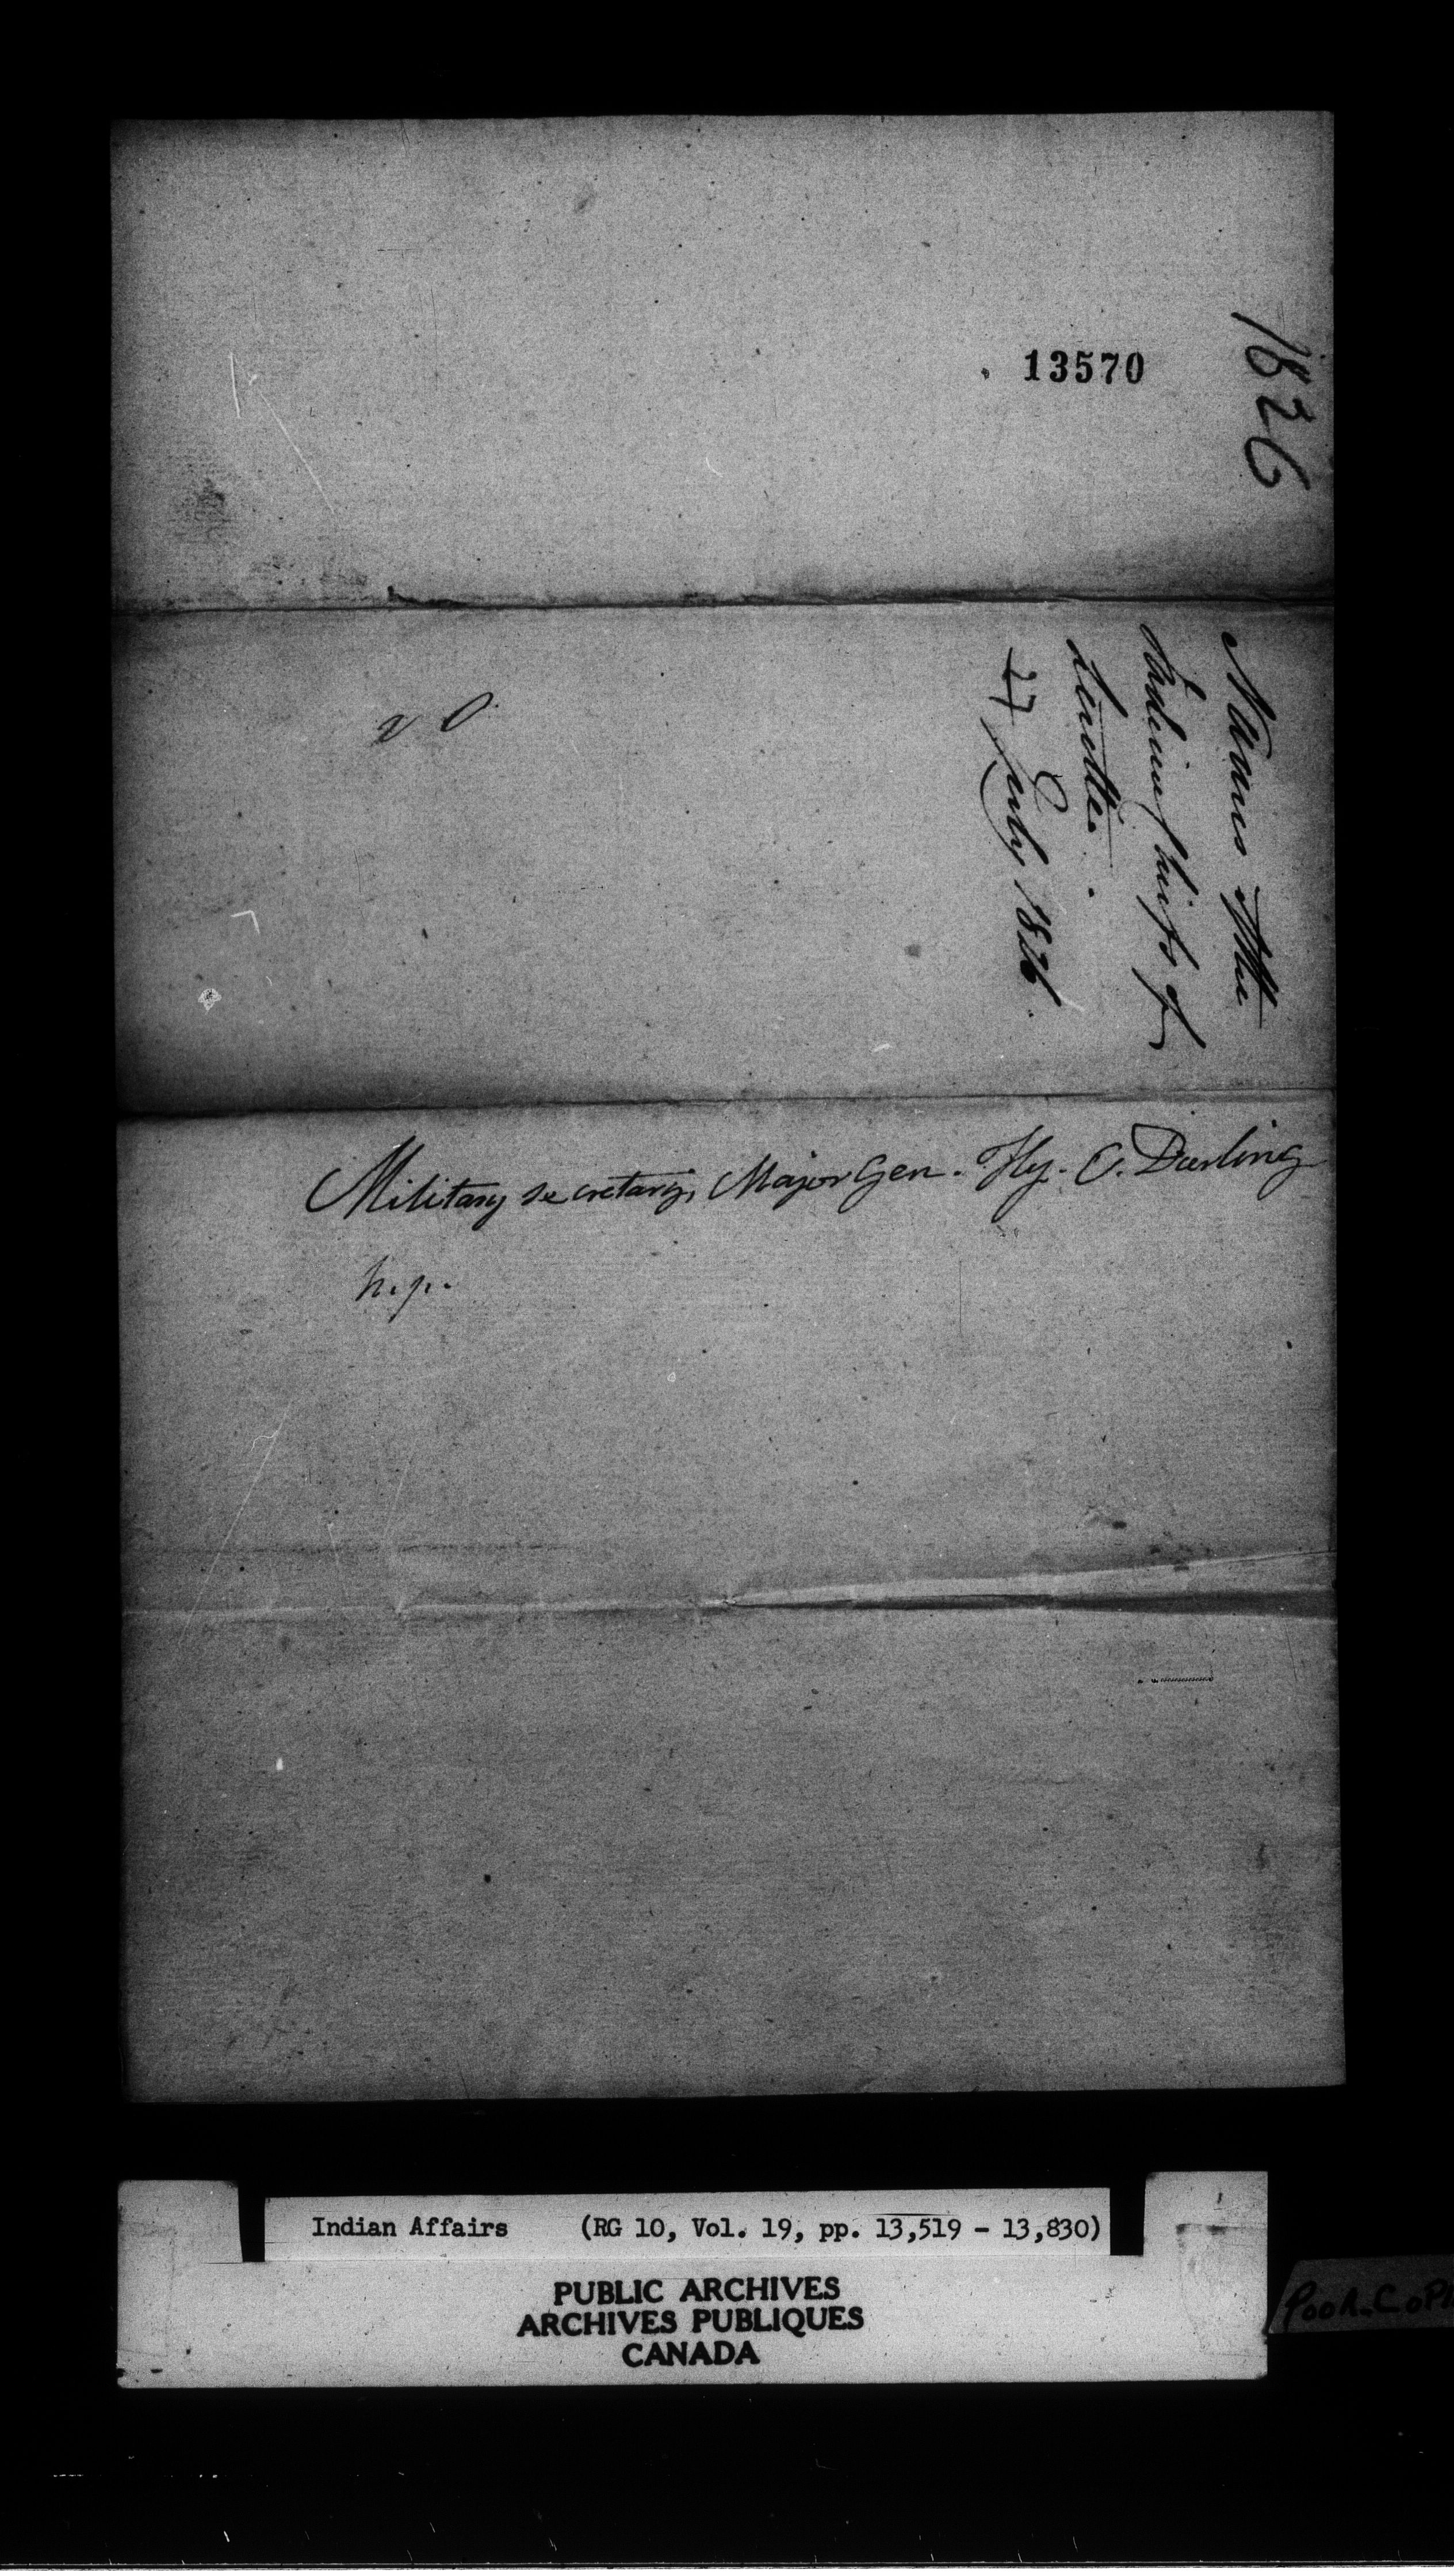 13570
1826
Names of the
Indian Chiefs of
Lorette.
27 July 1826.
Military secretary, Major Gen. Hy. C. Darling
n.p.
Indian Affairs (RG 10, Vol. 19, pp. 13,519 - 13,830)
PUBLIC ARCHIVES
ARCHIVES PUBLIQUES
CANADA
POOR COP